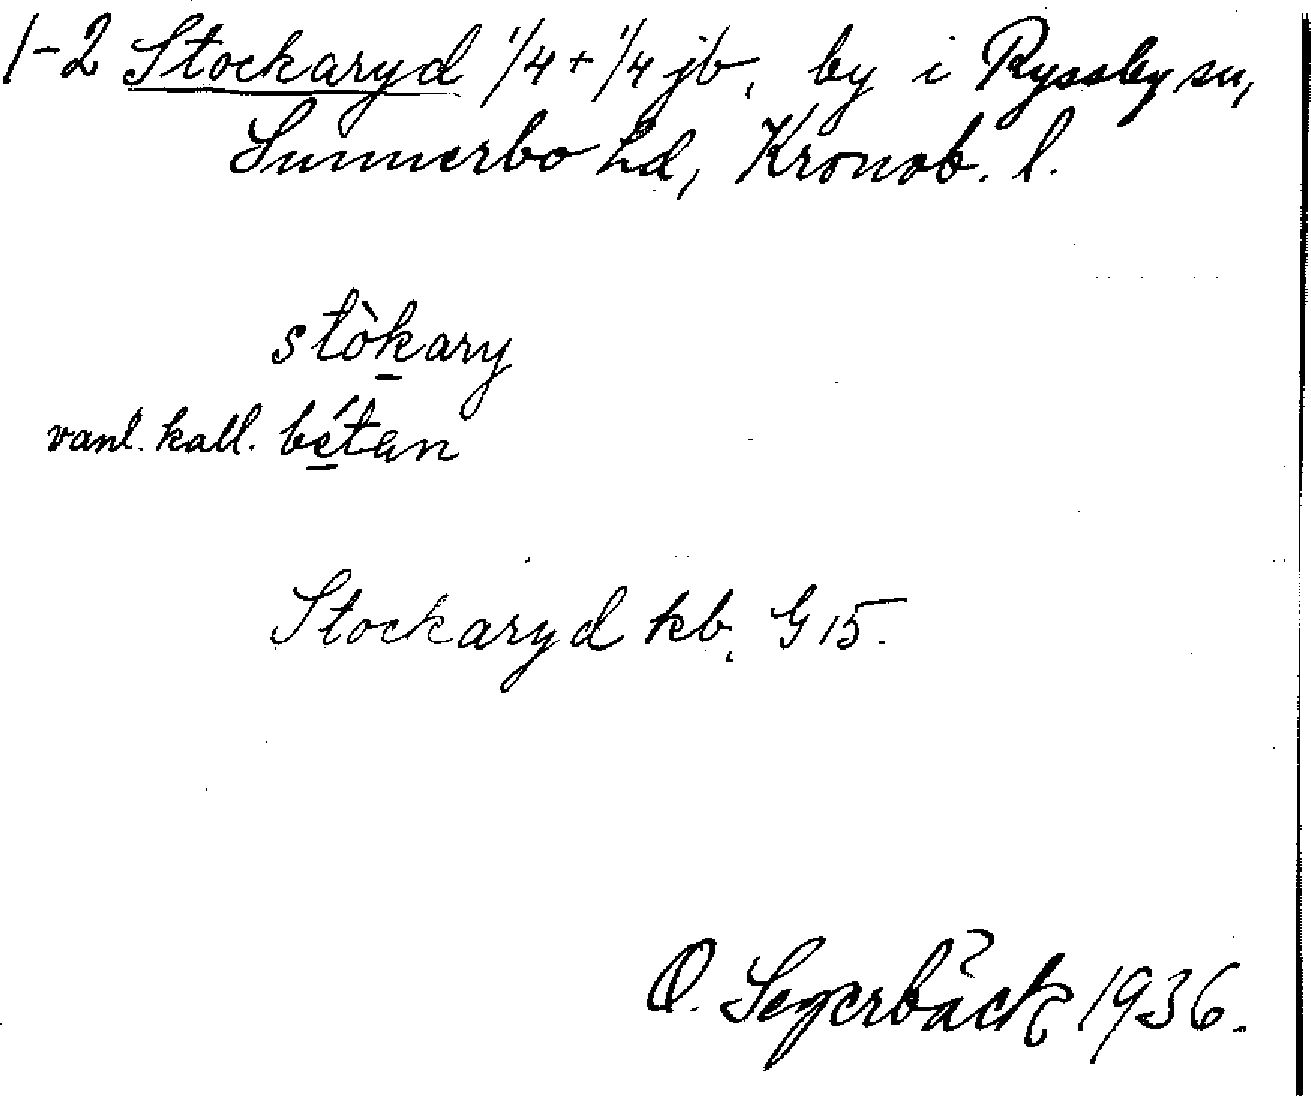 1-2 Stockaryd 1/4 + 1/4 jb, by i Ryssby sn,
Sunnerbo hd, Kronob. l.
stò̱kary
vanl. kall. bé̱tan
Stockaryd kb. G 15.
O. Segerbäck 1936.